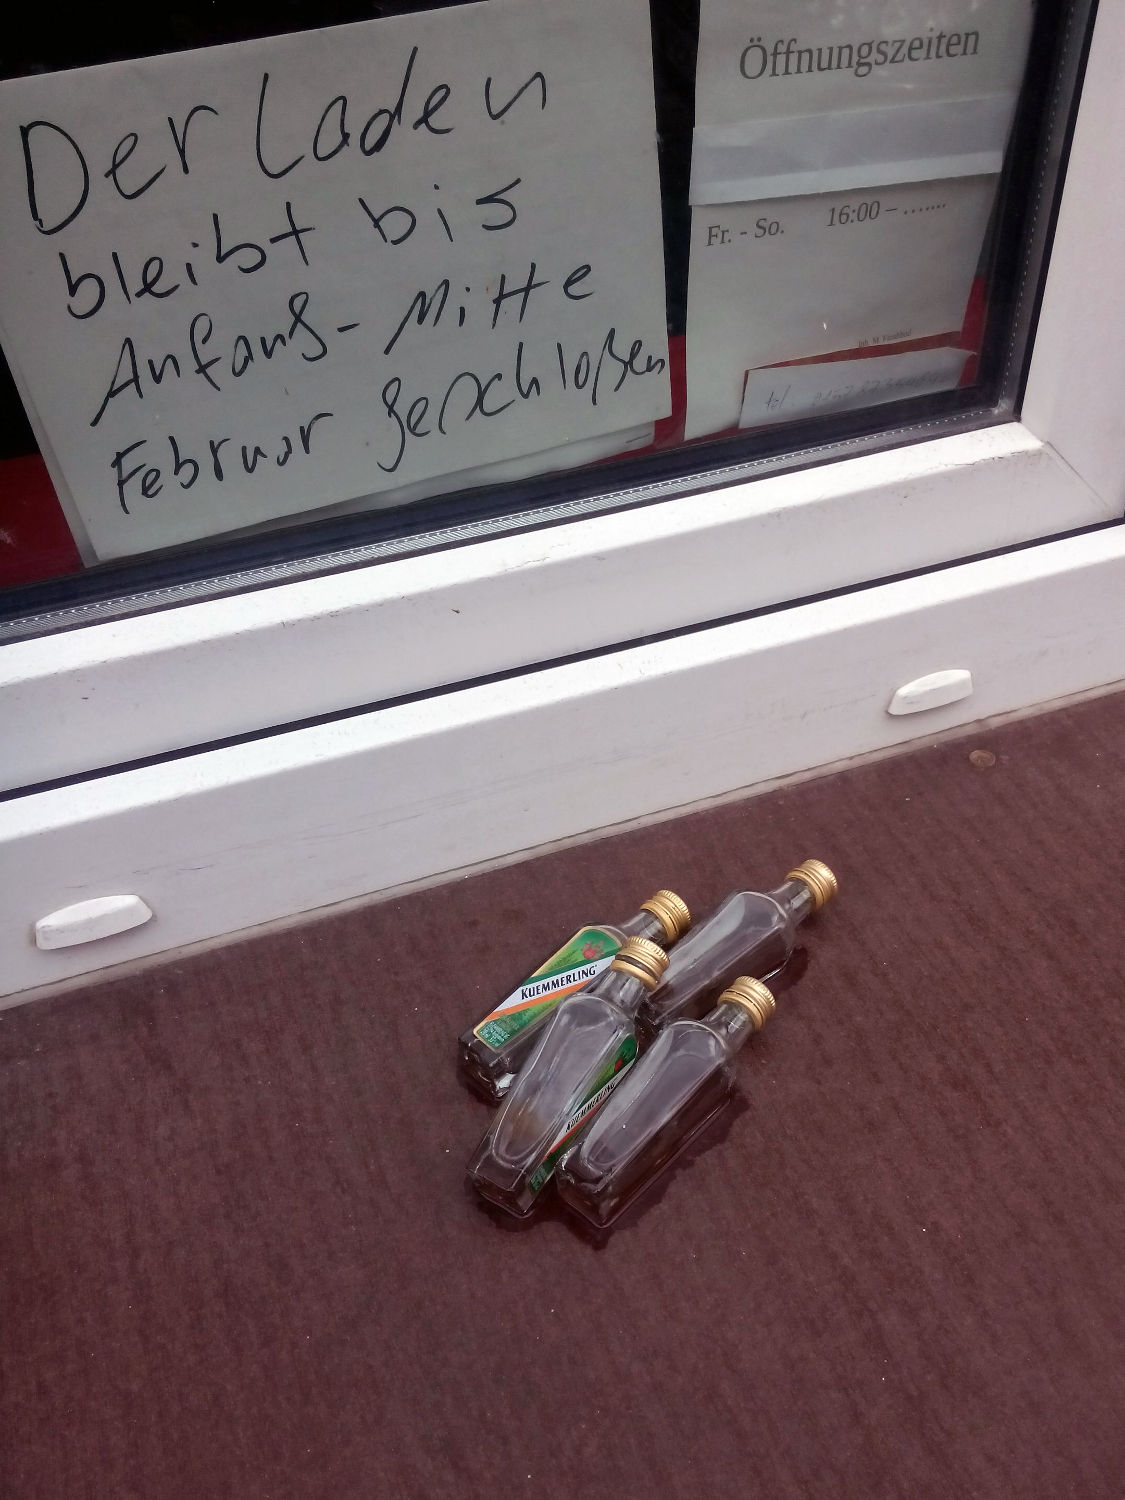 Der Laden
bleibt bis
Anfang - Mitte
Februar geschloßen
Öffnungszeiten
Fr. - So. 16:00 – .......
Inh. M.
tel.
KUEMMERLING
KUEMMERLING